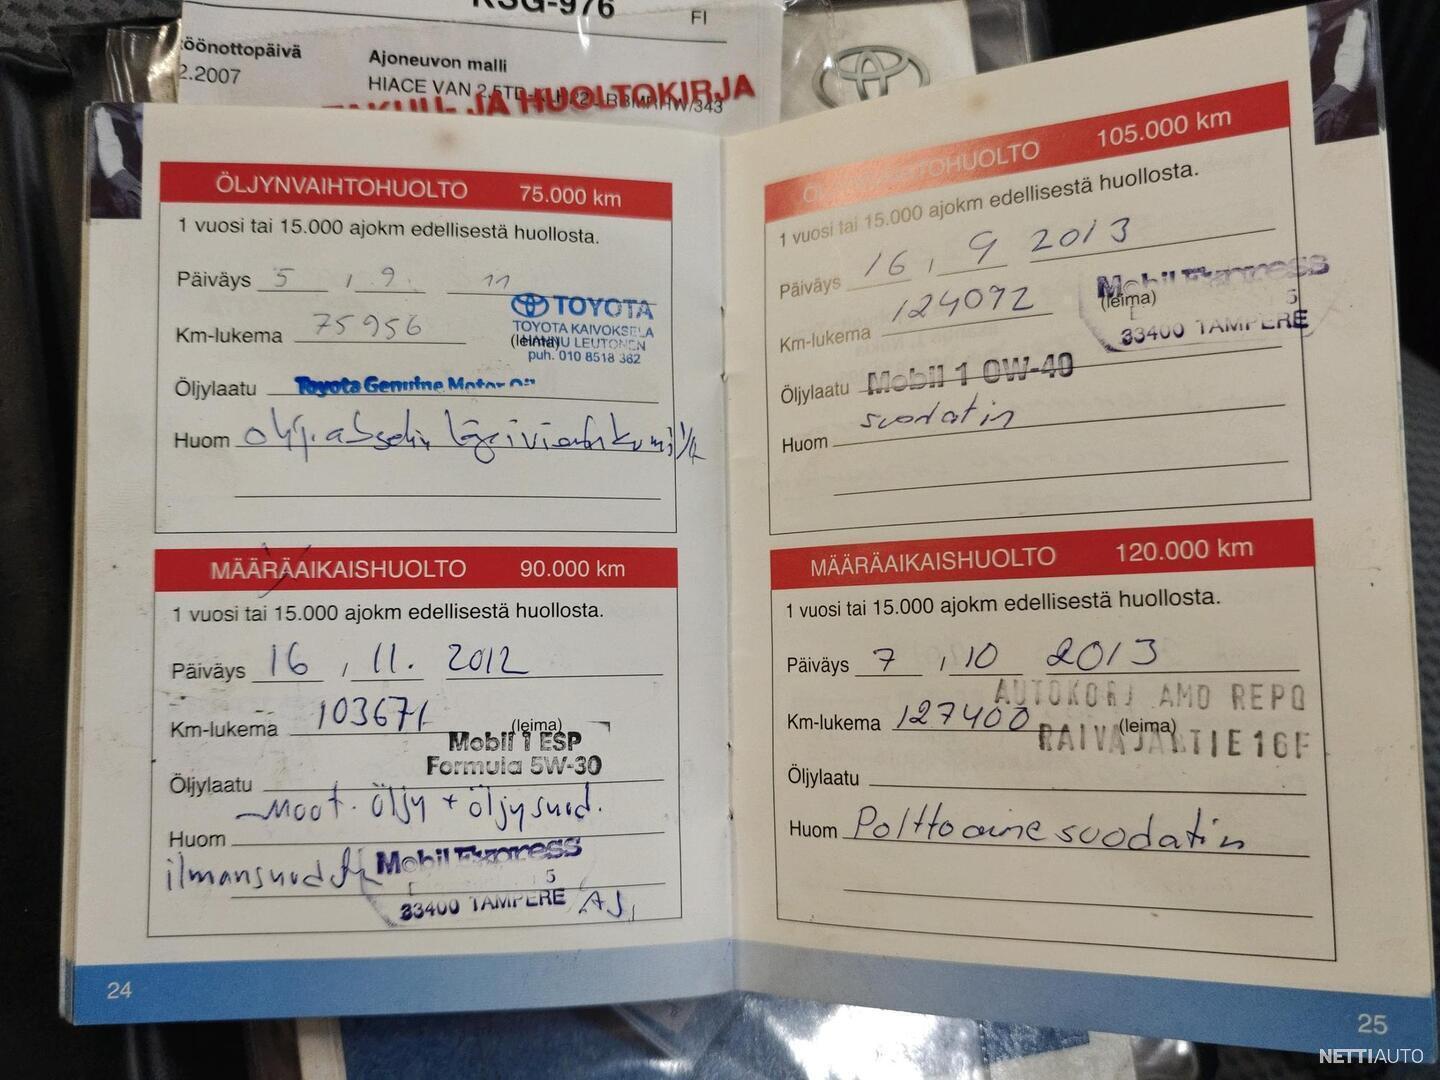 KSG-976
FI
töönottopäivä
2.2007
Ajoneuvon malli
HIACE VAN 2.5TD
JA HUOLTOKIRJA
ÖLJYNVAIHTOHUOLTO 75.000 km
1 vuosi tai 15.000 ajokm edellisestä huollosta.
Päiväys 5 , 9. 11
TOYOTA
TOYOTA KAIVOKSELA
Km-lukema 75956 (leima)
HANNU LEUTONEN
puh. 010 8518 362
Öljylaatu Toyota Genuine Motor Oil
Huom
MÄÄRÄAIKAISHUOLTO 90.000 km
1 vuosi tai 15.000 ajokm edellisestä huollosta.
Päiväys 16 , 11. 2012
Km-lukema 103671 (leima)
Mobil 1 ESP
Formula 5W-30
Öljylaatu
Moot. öljy + öljysuod.
Huom
ilmansuod
Mobil Express
5
33400 TAMPERE AJ,
24
105.000 km
1 vuosi tai 15.000 ajokm edellisestä huollosta.
Päiväys 16 , 9 2013
Km-lukema 124092 (leima)
Mobil Express
5
33400 TAMPERE
Öljylaatu Mobil 1 0W-40
suodatin
Huom
MÄÄRÄAIKAISHUOLTO 120.000 km
1 vuosi tai 15.000 ajokm edellisestä huollosta.
Päiväys 7 , 10 2013
AUTOKORJ AMO REPO
Km-lukema 127400 (leima)
RAIVAJANTIE 16F
Öljylaatu
Huom Polttoainesuodatin
25
NETTIAUTO